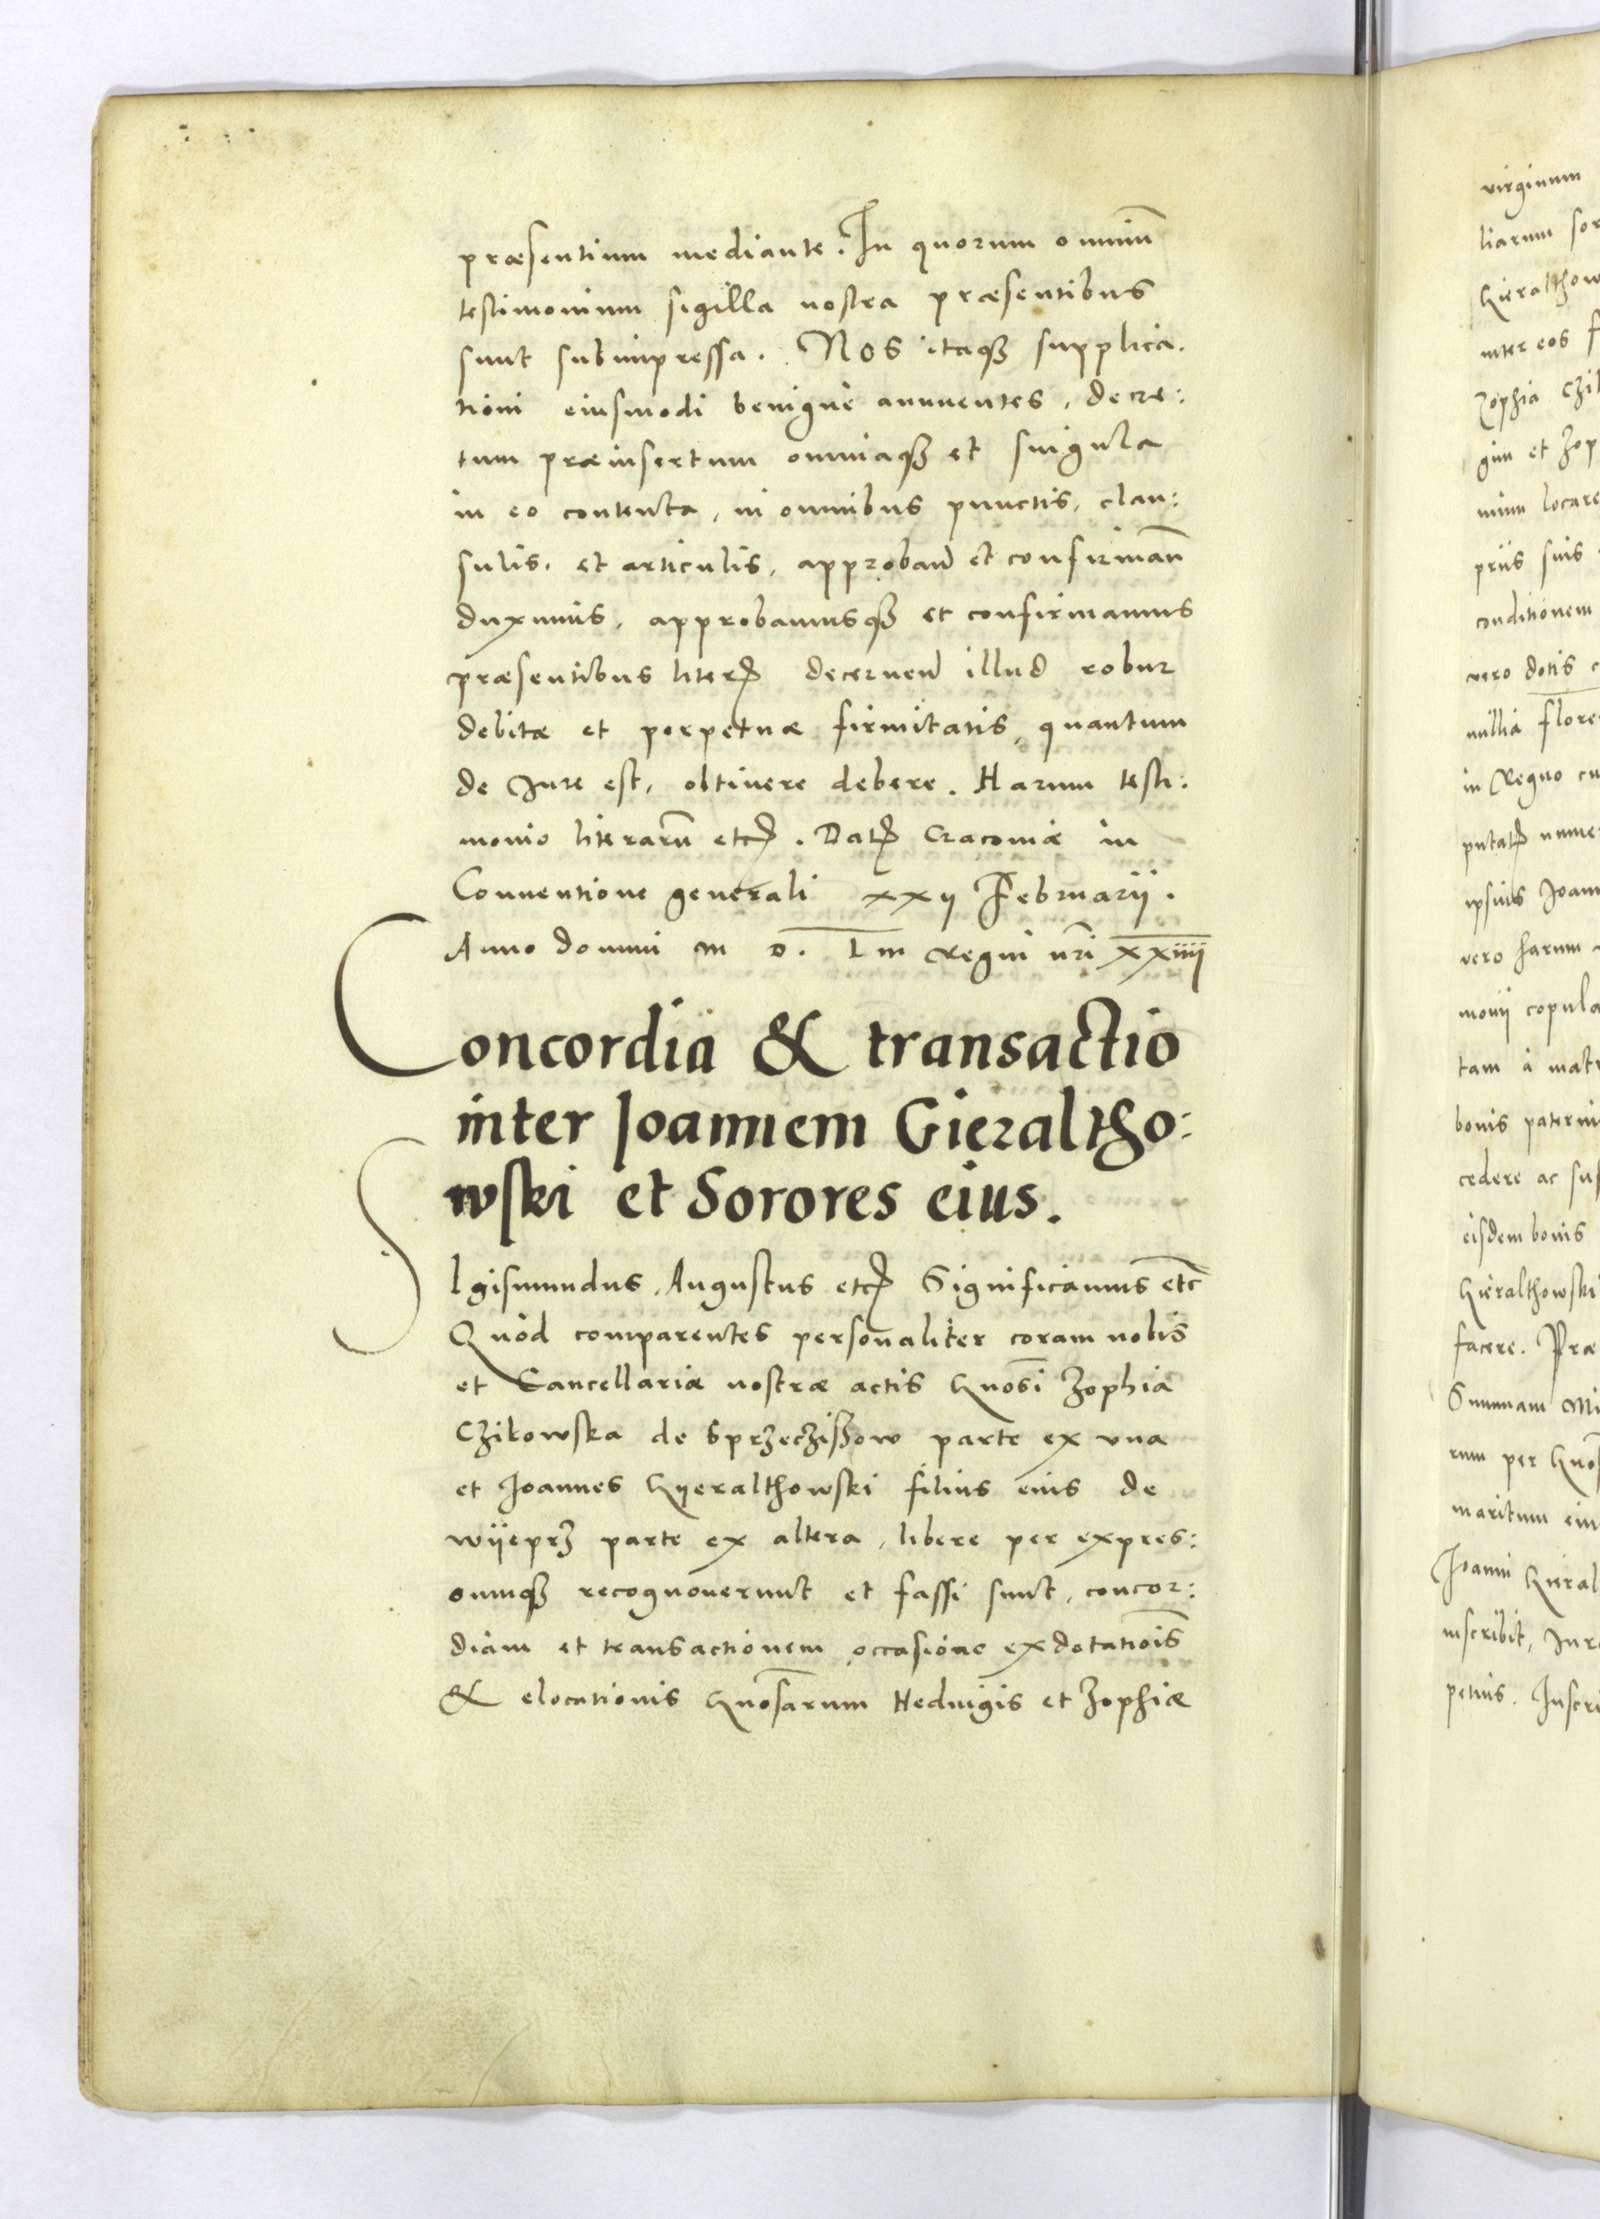 præsentium mediante. In quorum omniū
testimonium sigilla nostra præsentibus
sunt subimpressa. Nos itaqꝫ supplica.
tioni eiusmodi benigne annuentes, decre:
tum præinsertum omniaqꝫ et singula
in eo contenta, in omnibus punctis, clau:
sulis, et articulis, approband et confirmañ
duximus, approbamusqꝫ et confirmamus
præsentibus literꝭ decernend illud robur
debitæ et perpetuæ firmitatis, quantum
de Jure est, obtinere debere. Harum testi:
monio literarū etcꝭ. Datꝭ Cracoviæ in
Conventione generali xxij Februarij.
Anno domini M D. L III Regni nr̄i xxiiii
Concordia & transactio
inter Joannem Gieraltho:
wski et Sorores eius.
SIgismundus Augustus etcꝭ Significamus etc̄
Quòd comparentes personaliter coram nobis
et Cancellariæ nostræ actis Gnōsi Zophia
Czikowska de Sprzecziszow parte ex una
et Joannes Gyeralthowski filius eius de
wijeprz parte ex altera, libere per expres:
sumqꝫ recognoverunt et fassi sunt, concor:
diam et transactionem occasione exdotatiōis
& elocutionis Gnōsarum Hedvigis et Zophiæ
virginum
liarum sor
Gieralthow
inter eos f
Zophia Czik
gim et Zop
minu locare
priis suis
conditionem
vero dotis c
millia flore
in Regno cu
putatꝭ nume
ipsius Joann
vero harum
monij copula
tam à matr
bonis paterni
cedere ac suf
eisdem bonis
Gieralthowski
facere. Præ
Summam Mi
rum per Gnōs
maritum eiu
Joanni Gieral
inscribit, Jure
petuis. Inscri